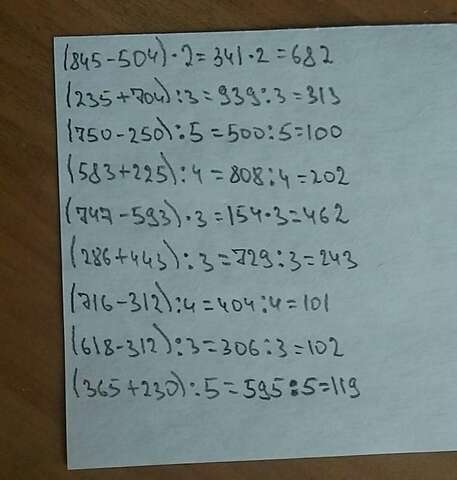 (845-504)·2=341·2=682
(235+704):3=939:3=313
(750-250):5=500:5=100
(583+225):4=808:4=202
(747-593)·3=154·3=462
(286+443):3=729:3=243
(716-312):4=404:4=101
(618-312):3=306:3=102
(365+230):5=595:5=119